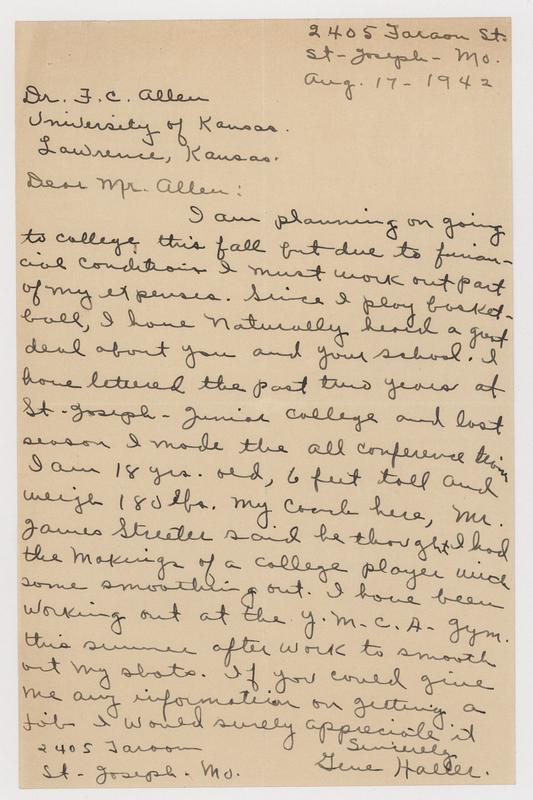 2405 Faraon St.
St-Joseph-Mo.
Aug. 17-1942
Dr. F. C. Allen
University of Kansas.
Lawrence, Kansas.
Dear Mr. Allen:
I am planning on going
to college this fall but due to finan-
cial condition I must work out part
of my expenses. Since I play basket-
ball, I have naturally heard a great
deal about you and your school. I
have lettered the past two years at
St-Joseph-Junior college and last
season I made the all conference team
I am 18 yrs. old, 6 feet tall and
weigh 180 lbs. My coach here, Mr.
James Streeter said he thought I had
the makings of a college player with
some smoothing out. I have been
working out at the Y.M.C.A. gym.
this summer after work to smooth
out my shots. If you could give
me any information on getting a
job I would surely appreciate it
Sincerely
2405 Faraon
Gene Haller.
St-Joseph-Mo.